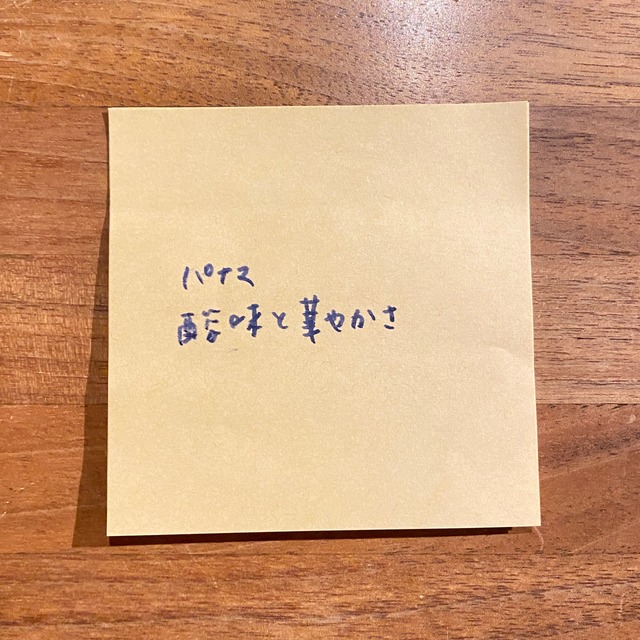 パナマ
酸味と華やかさ